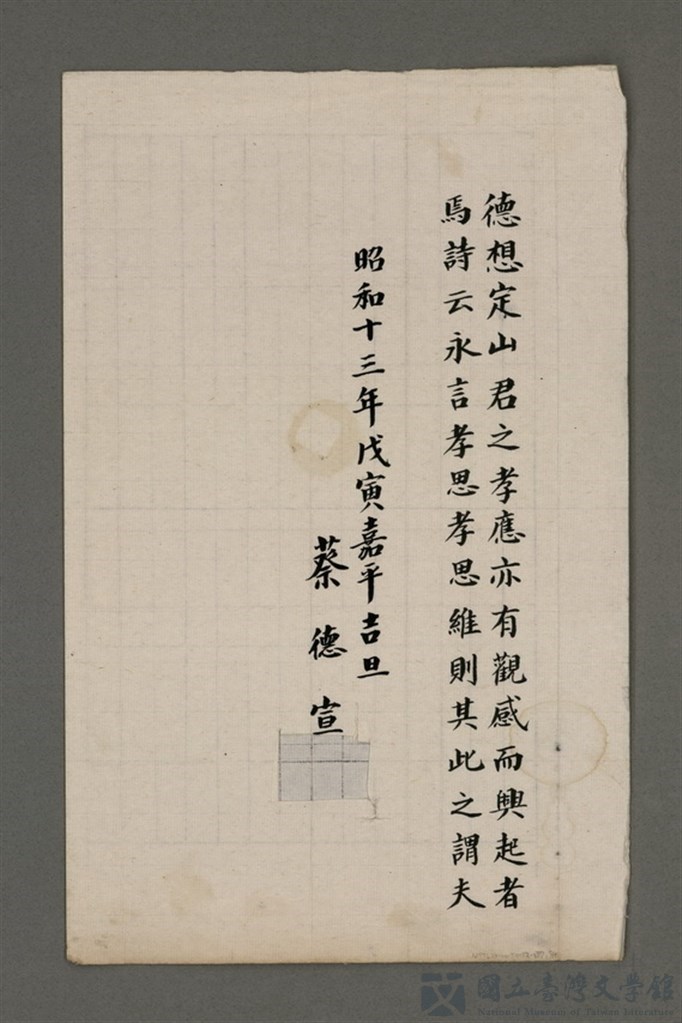 德想定山君之孝應亦有觀感而興起者
焉詩云永言孝思孝思維則其此之謂夫
昭和十三年戊寅嘉平吉旦
蔡德宣
國立臺灣文學館
National Museum of Taiwan Literature